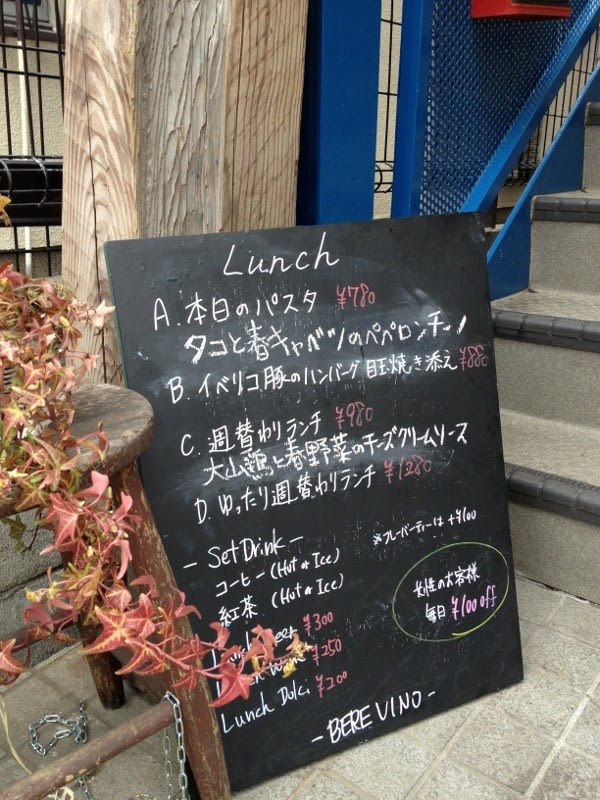 Lunch
A. 本日のパスタ ¥780
タコと春キャベツのペペロンチーノ
B. イベリコ豚のハンバーグ 目玉焼き添え ¥880
C. 週替わりランチ ¥980
大山鶏と春野菜のチーズクリームソース
D. ゆったり週替わりランチ ¥1280
- Set Drink -
※フレーバーティーは +¥100
コーヒー (Hot or Ice)
紅茶 (Hot or Ice)
女性のお客様
毎日 ¥100 off
¥300
¥250
Lunch Dolci ¥200
- BERE VINO -